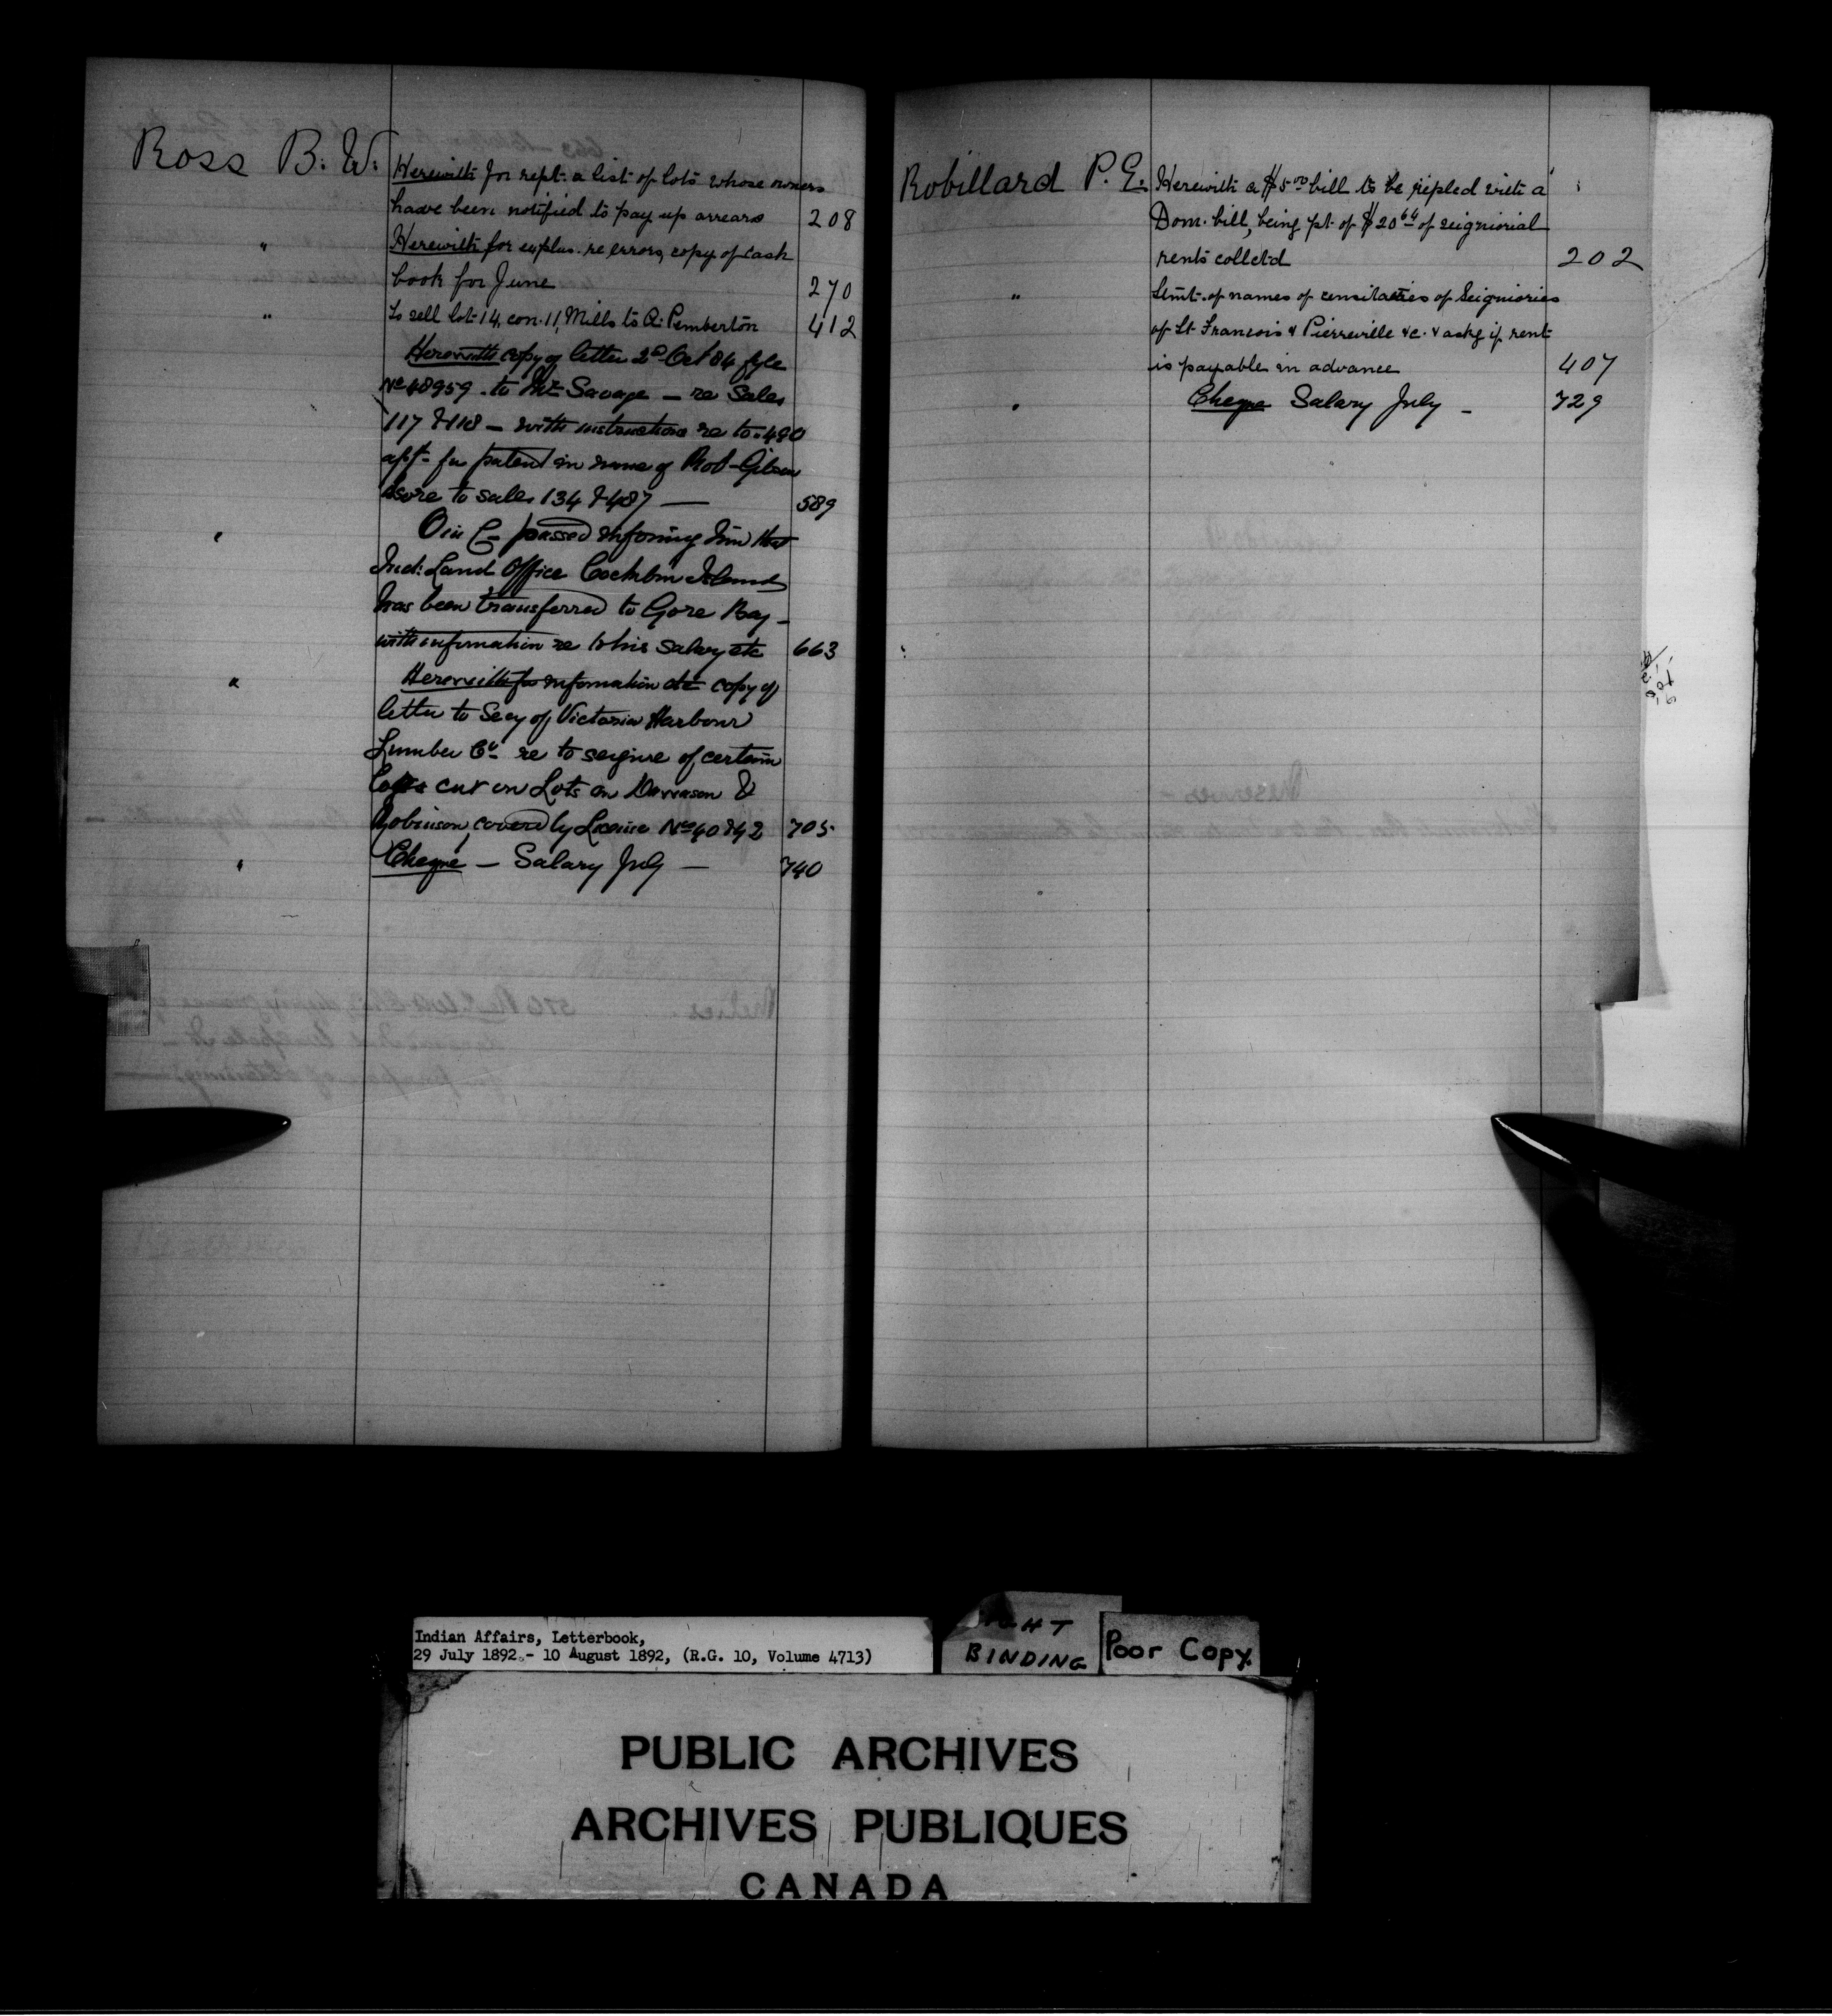 Ross B. W. Herewith for rept. a list of lots whose owners
have been notified to pay up arrears 208
" Herewith for explan. re errors, copy of cash
book for June 270
" To sell lot 14, con. 11, Mills to A. Pemberton 412
Herewith copy of letter 2d Oct 84 fyle
No 48959 to Mr Savage — re Sales
117 & 118 — with instructions re to 490
apt for patent in name of Rob Gibson
also re to sales 134 & 487 — 589
" O in C passed informing him that
Ind. Land Office Cockburn Island
has been transferred to Gore Bay —
with information re to his salary etc 663
" Herewith for information etc copy of
letter to Secy of Victoria Harbour
Lumber Co re to seizure of certain
Logs cut on Lots on Dawson &
Robinson, covered by License No 40 & 42 705
" Cheque — Salary July — 740
Robillard P. E. Herewith a $5 00 bill to be repled with a
Dom. bill, being pt. of $20 64 of seigniorial
rents colletd 202
" Stmt. of names of censitaries of Seigniories
of St Francois & Pierreville &c. & askg if rent
is payable in advance 407
" Cheque Salary July — 729
Indian Affairs, Letterbook,
29 July 1892 - 10 August 1892, (R.G. 10, Volume 4713)
BINDING
Poor Copy.
PUBLIC ARCHIVES
ARCHIVES PUBLIQUES
CANADA